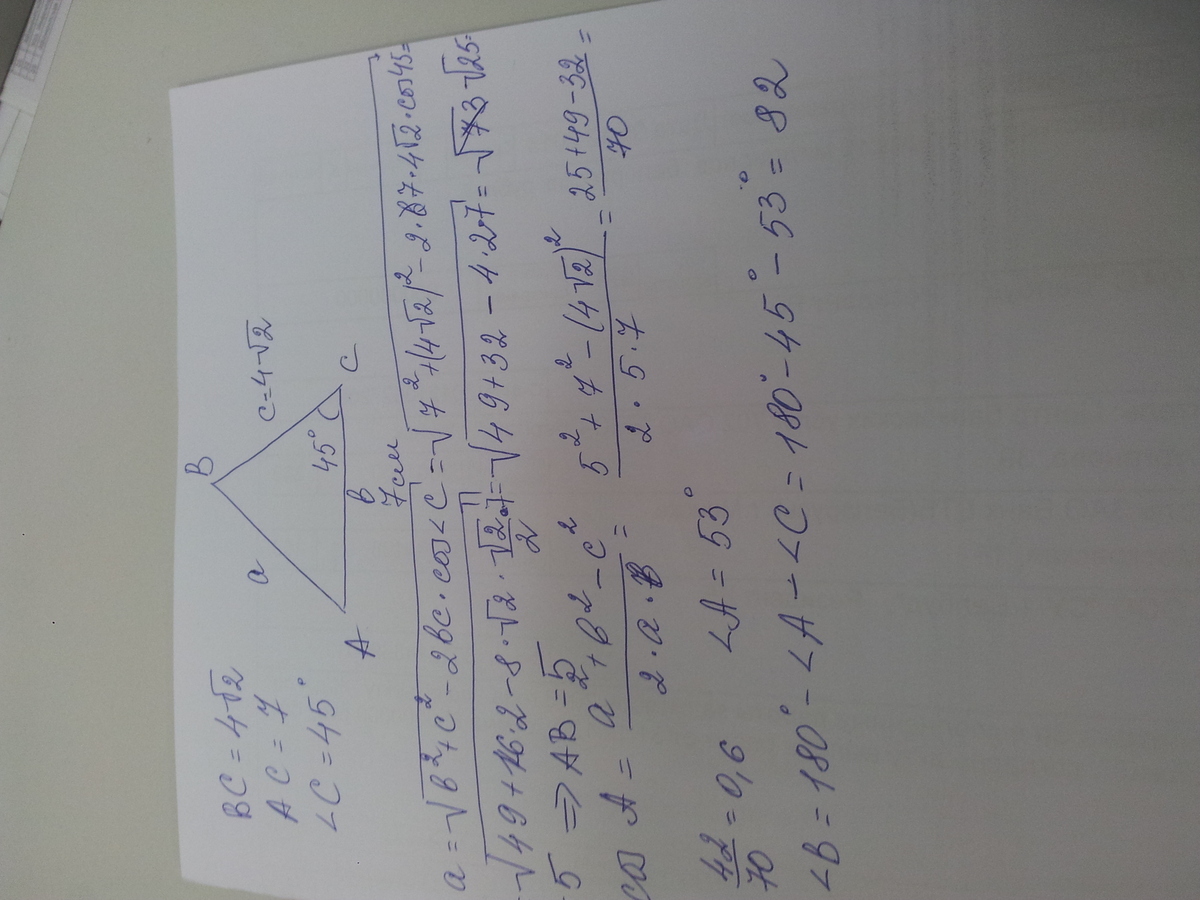 BC = 4√2
AC = 7
∠C = 45°
B
a
c = 4√2
45°
A
в
C
7см
a = √(в² + c² - 2вc · cos∠C) = √(7² + (4√2)² - 2 · 7 · 4√2 · cos45 =
= √(49 + 16·2 - 8 · √2 · √2/2 · 7) = √(49 + 32 - 4 · 2 · 7) = √25 =
= 5 ⇒ AB = 5
cos A = (a² + в² - c²)/(2 · a · в) = (5² + 7² - (4√2)²)/(2 · 5 · 7) = (25 + 49 - 32)/70 =
42/70 = 0,6 ∠A = 53°
∠B = 180° - ∠A - ∠C = 180° - 45° - 53° = 82